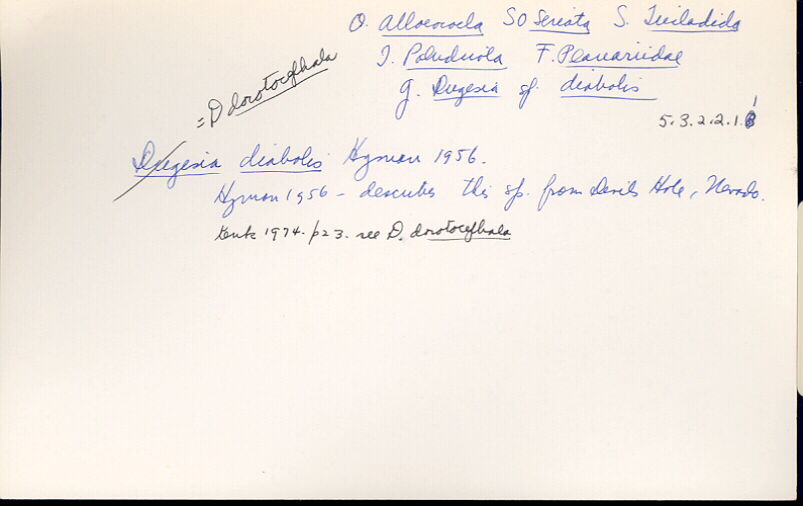 O. Alloeocoela SO Seriata S. Tricladida
I. Paludicola F. Planariidae
g. Dugesia sp. diabolis
= D dorotocephala
5.3.2.2.1.
Dugesia diabolis Hyman 1956.
Hyman 1956 - describes this sp. from Devils Hole, Nevada.
Kenk 1974. p23. see D. dorotocephala